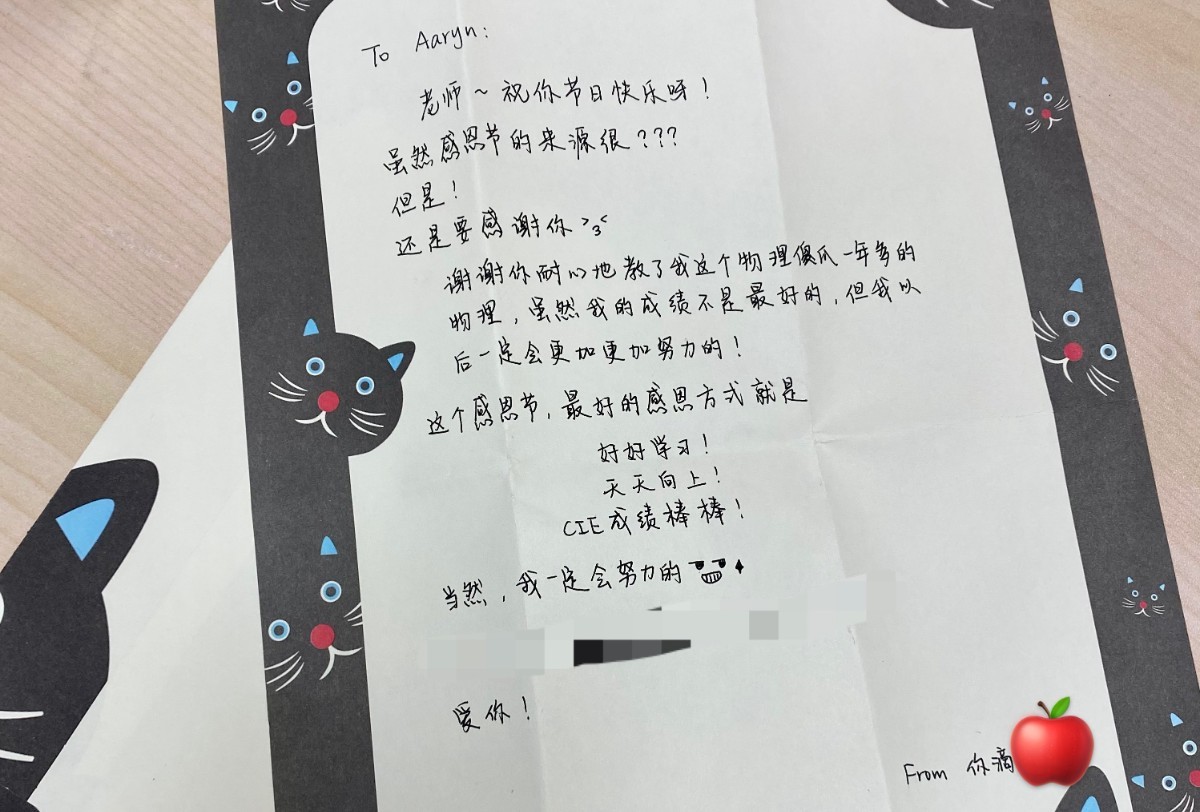 To Aaryn:
老师~祝你节日快乐呀!
虽然感恩节的来源很???
但是!
还是要感谢你 >3<
谢谢你耐心地教了我这个物理傻瓜一年多的
物理,虽然我的成绩不是最好的,但我以
后一定会更加更加努力的!
这个感恩节,最好的感恩方式就是
好好学习!
天天向上!
CIE成绩棒棒!
当然,我一定会努力的
爱你!
From 你滴